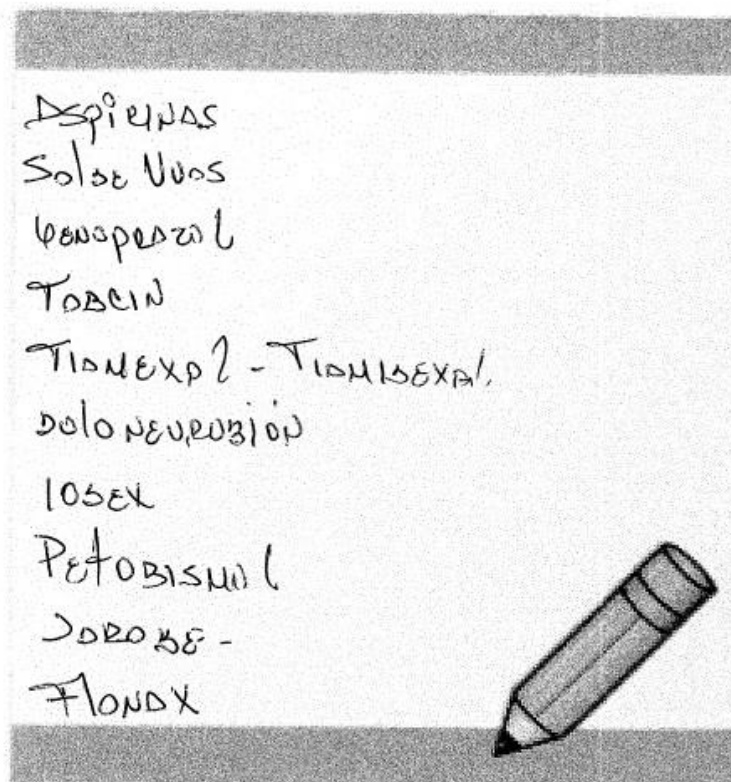 Aspirinas
Sol de Uvas
Omeprazol
Tabcin
Tiamexal - Tiamidexal.
Doloneurobión
Iodex
Petobismol
Jarabe -
Flonax